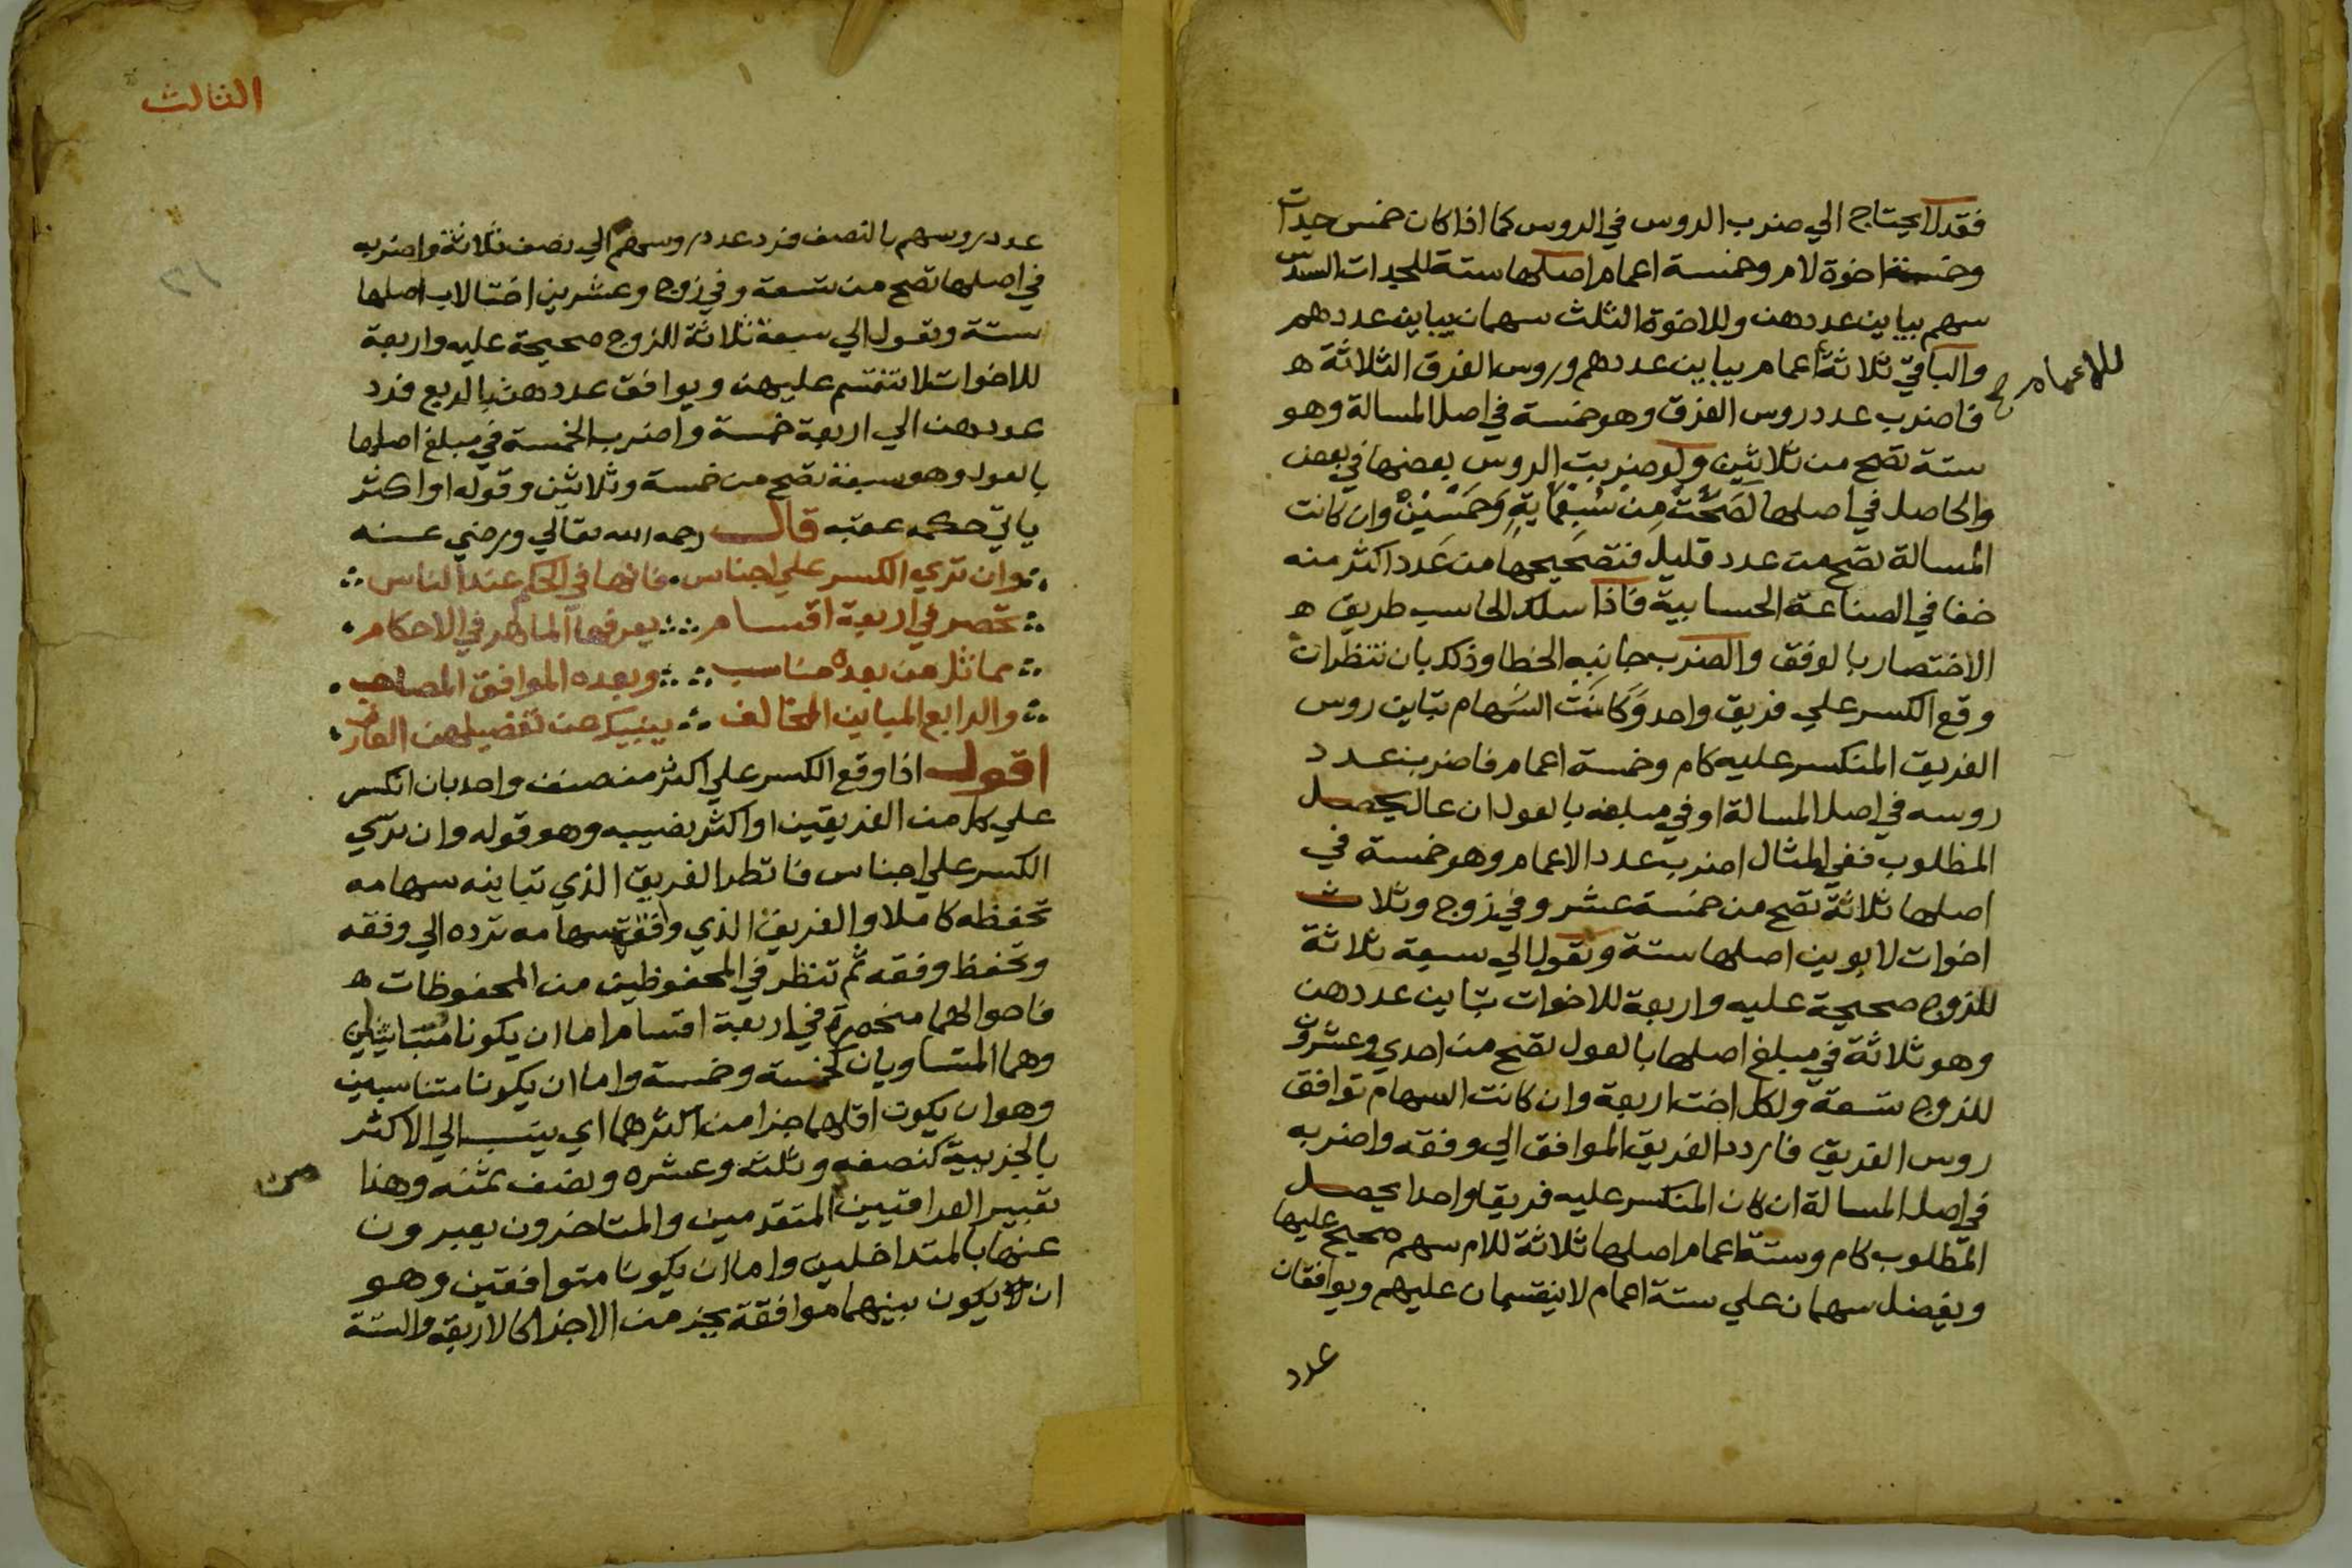 فقد لا يحتاج الي ضرب الروس في الروس كما اذا كان خمس جدات
وخمسة اخوة لام وخمسة اعمام اصلها ستة للجدات السدس
سهم يباين عددهن وللاخوة الثلث سهمان يباين عددهم
والباقي ثلاثة اعمام يباين عددهم وروس الفرق الثلاثة ه
للاعمام صح
فاضرب عدد روس الفرق وهو خمسة في اصل المسالة وهو
ستة تصح من ثلاثين ولو ضربت الروس بعضها في بعض
والحاصل في اصلها لصحت من سبعماية وخمسين وان كانت
المسالة تصح من عدد قليل فتصحيحها من عدد اكثر منه
خطا في الصناعة الحسابية فاذا سلك الحاسب طريق ه
الاختصار بالوفق والضرب جانبه الخطا وذلك بان تنظر ان
وقع الكسر علي فريق واحد وكانت السهام تباين روس
الفريق المنكسر عليه كام وخمسة اعمام فاضرب عدد
روسه في اصل المسالة او في مبلغه بالعول ان عال يحصل
المطلوب ففي المثال اضرب عدد الاعمام وهو خمسة في
اصلها ثلاثة تصح من خمسة عشر وفي زوج وثلاث
اخوات لابوين اصلها ستة وتعول الي سبعة ثلاثة
للزوج صحيحة عليه واربعة للاخوات تباين عددهن
وهو ثلاثة في مبلغ اصلها بالعول تصح من احدي وعشرين
للزوج تسعة ولكل اخت اربعة وان كانت السهام توافق
روس الفريق فاردد الفريق الموافق الي وفقه واضربه
في اصل المسالة ان كان المنكسر عليه فريقا واحدا يحصل
المطلوب كام وستة اعمام اصلها ثلاثة للام سهم صحيح عليها
ويفضل سهمان علي ستة اعمام لا ينقسمان عليهم ويوافقان
عدد
الثالث
عدد روسهم بالنصف فرد عدد روسهم الي نصف ثلاثة واضربه
في اصلها تصح من تسعة وفي زوج وعشرين اختا لاب اصلها
ستة وتعول الي سبعة ثلاثة للزوج صحيحة عليه واربعة
للاخوات لا تنقسم عليهن ويوافق عددهن بالربع فرد
عددهن الي اربعة خمسة واضرب الخمسة في مبلغ اصلها
بالعول وهو سبعة تصح من خمسة وثلاثين وقوله او اكثر
ياتي حكمه عقبه قال رحمه الله تعالي ورضي عنه
وان تري الكسر علي اجناس فانها في الحكم عند الناس
تحصر في اربعة اقسام يعرفها الماهر في الاحكام
مماثل من بعده مناسب وبعده الموافق المصاحب
والرابع المباين المخالف ينبيك عن تفصيلهن العارف
اقول اذا وقع الكسر علي اكثر من صنف واحد بان انكسر
علي كل من الفريقين او اكثر نصيبه وهو قوله وان تري
الكسر علي اجناس فانظر الفريق الذي تباينه سهامه
تحفظه كاملا والفريق الذي وافقته سهامه ترده الي وفقه
وتحفظ وفقه ثم تنظر في المحفوظين من المحفوظات ه
فاحوالهما منحصرة في اربعة اقسام اما ان يكونا متماثلين
وهما المتساويان كخمسة وخمسة واما ان يكونا متناسبين
وهو ان يكون اقلهما جزا من اكثرهما اي ينسب الي الاكثر
بالجزيية كنصفه وثلثه وعشره ونصف ثمنه وهذا
تعبير العراقيين المتقدمين والمتاخرون يعبرون
عنها بالمتداخلين واما ان يكونا متوافقين وهو
ان يكون بينهما موافقة بجزء من الاجزا كالاربعة والستة
من